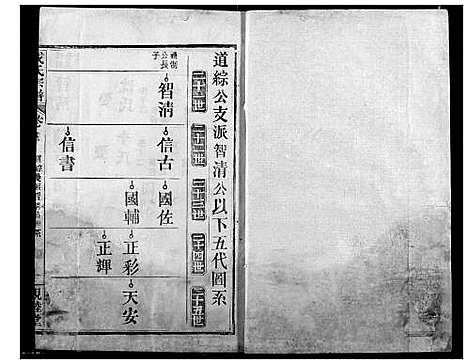 道綜公支派智清公以下五代圖系
二十一世
二十二世
二十三世
二十四世
二十五世
公長子
智清
信古
信書
國佐
國輔
正彩
正輝
天安
氏宗譜